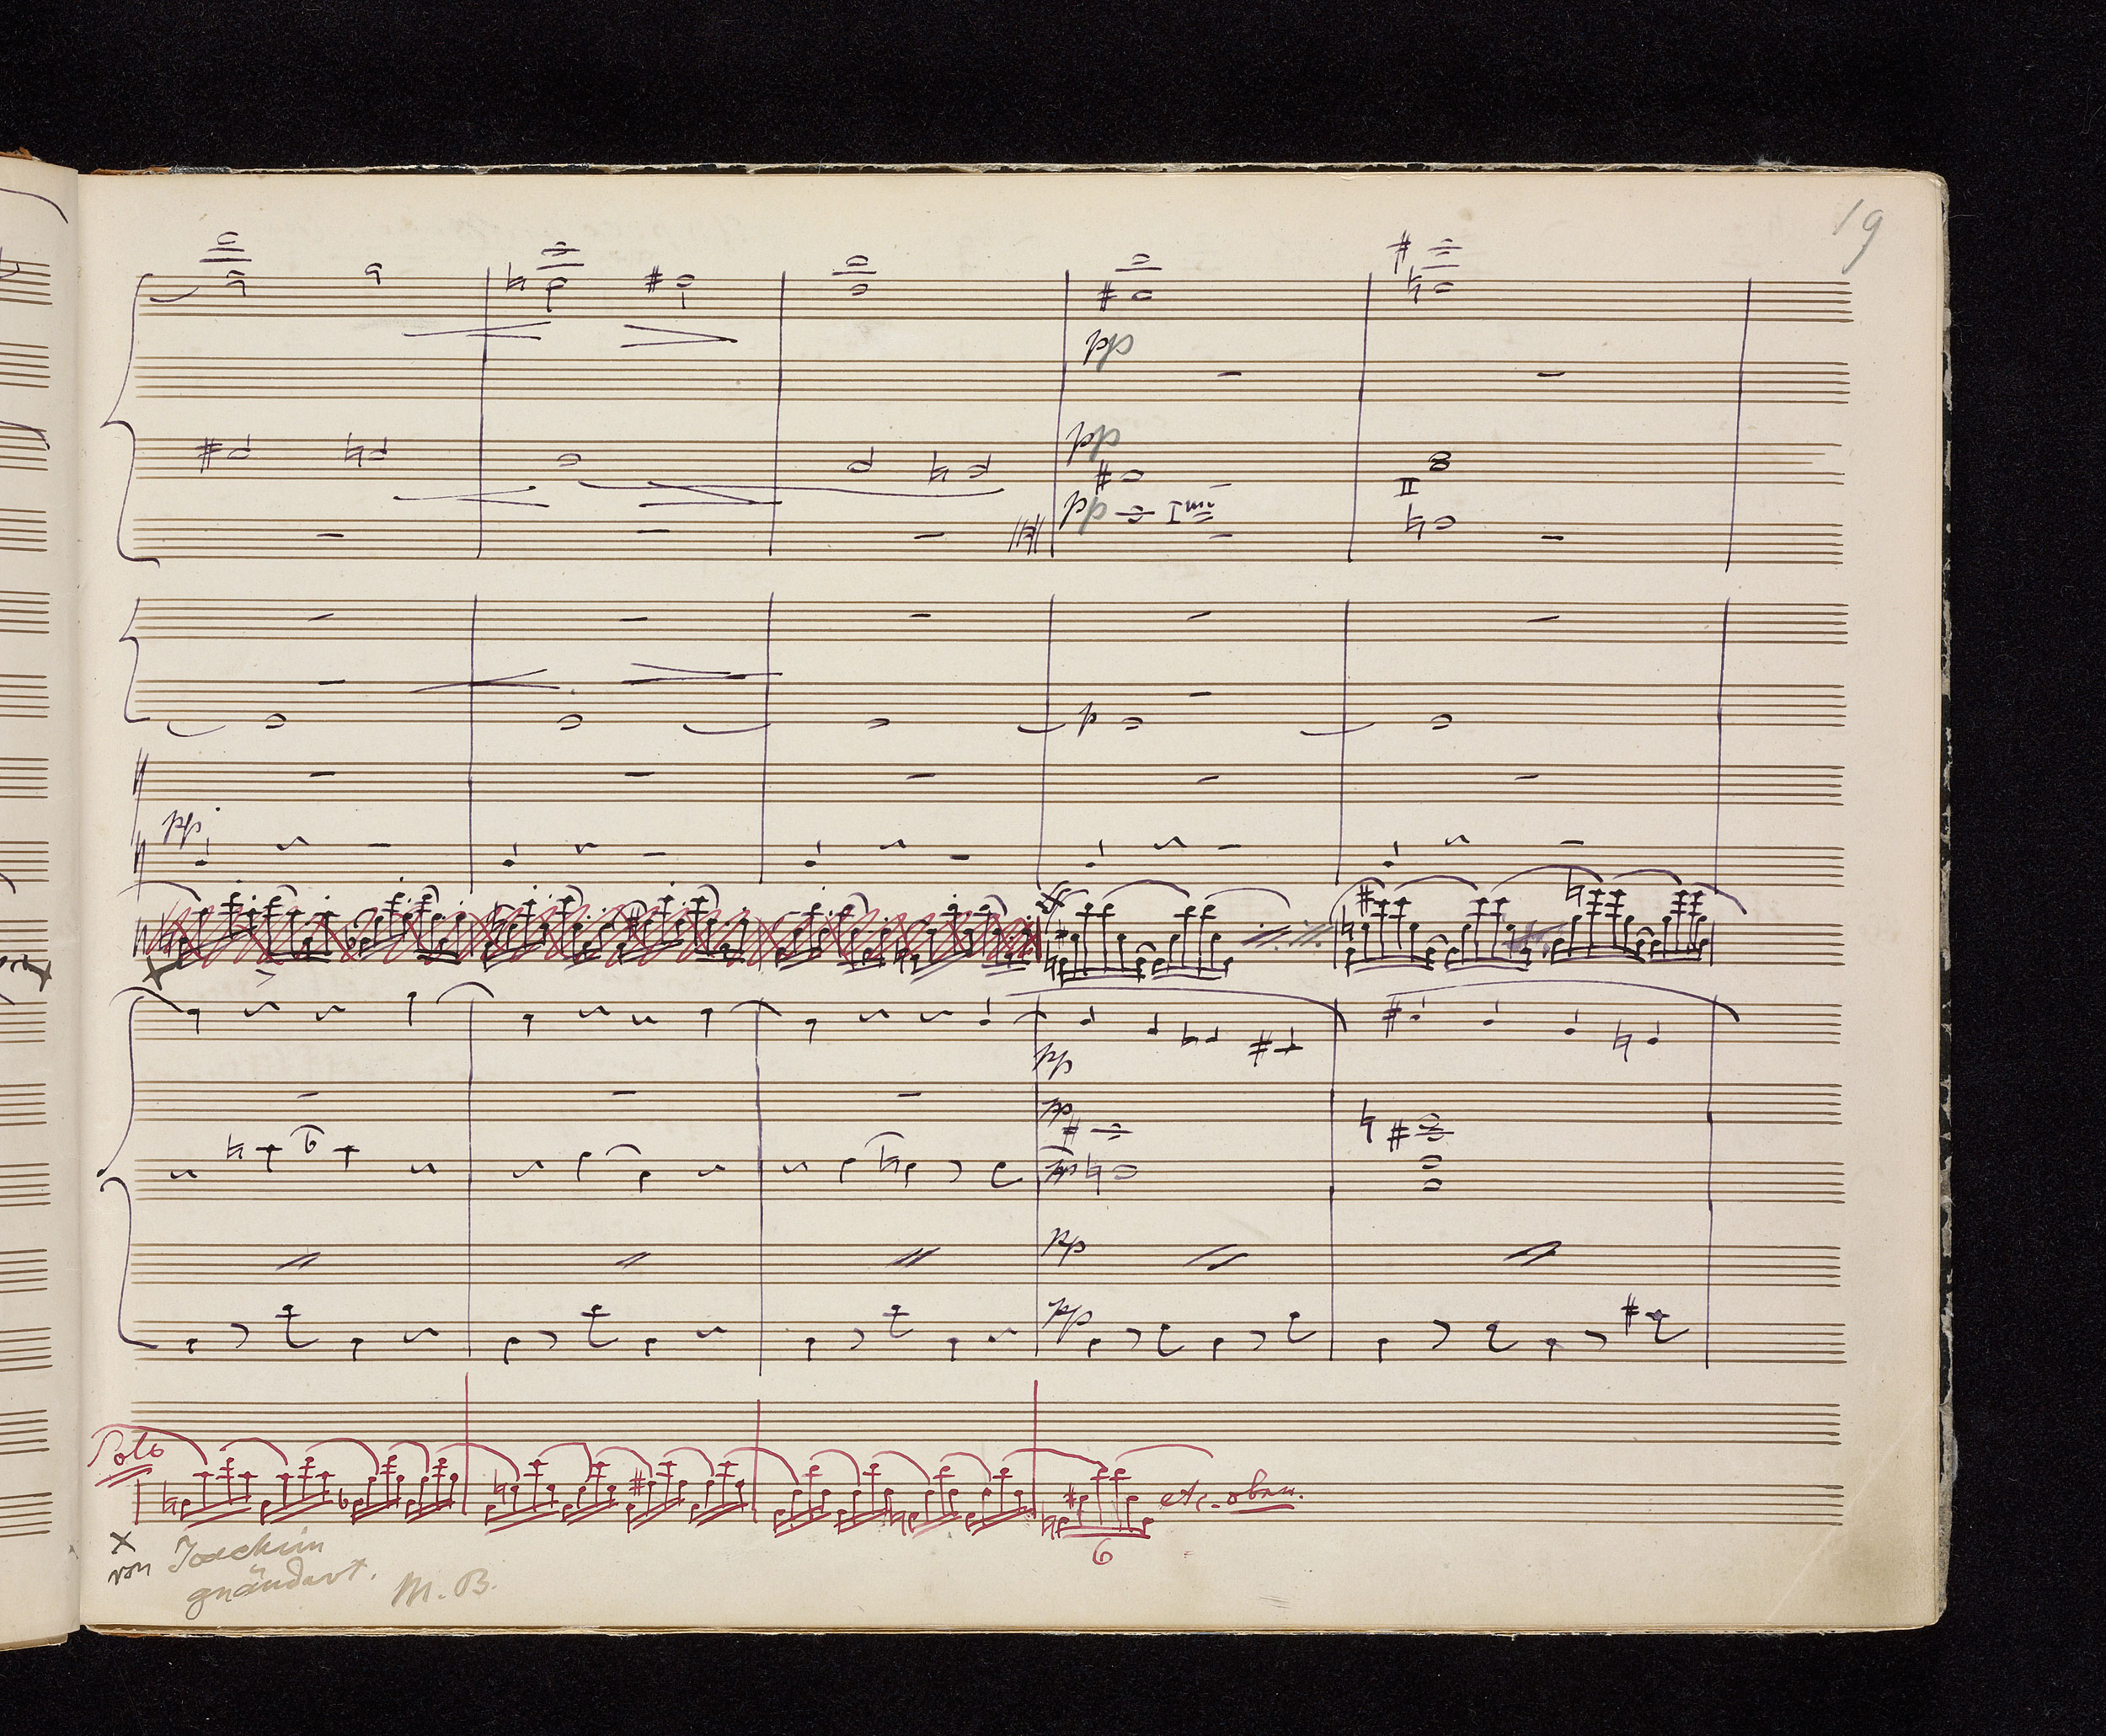 19
pp
pp
pp Imo
II
p
pp
pp
pp
pp
pp
pp
Solo
etc. oben.
6
x
von Joachim
geändert. M. B.